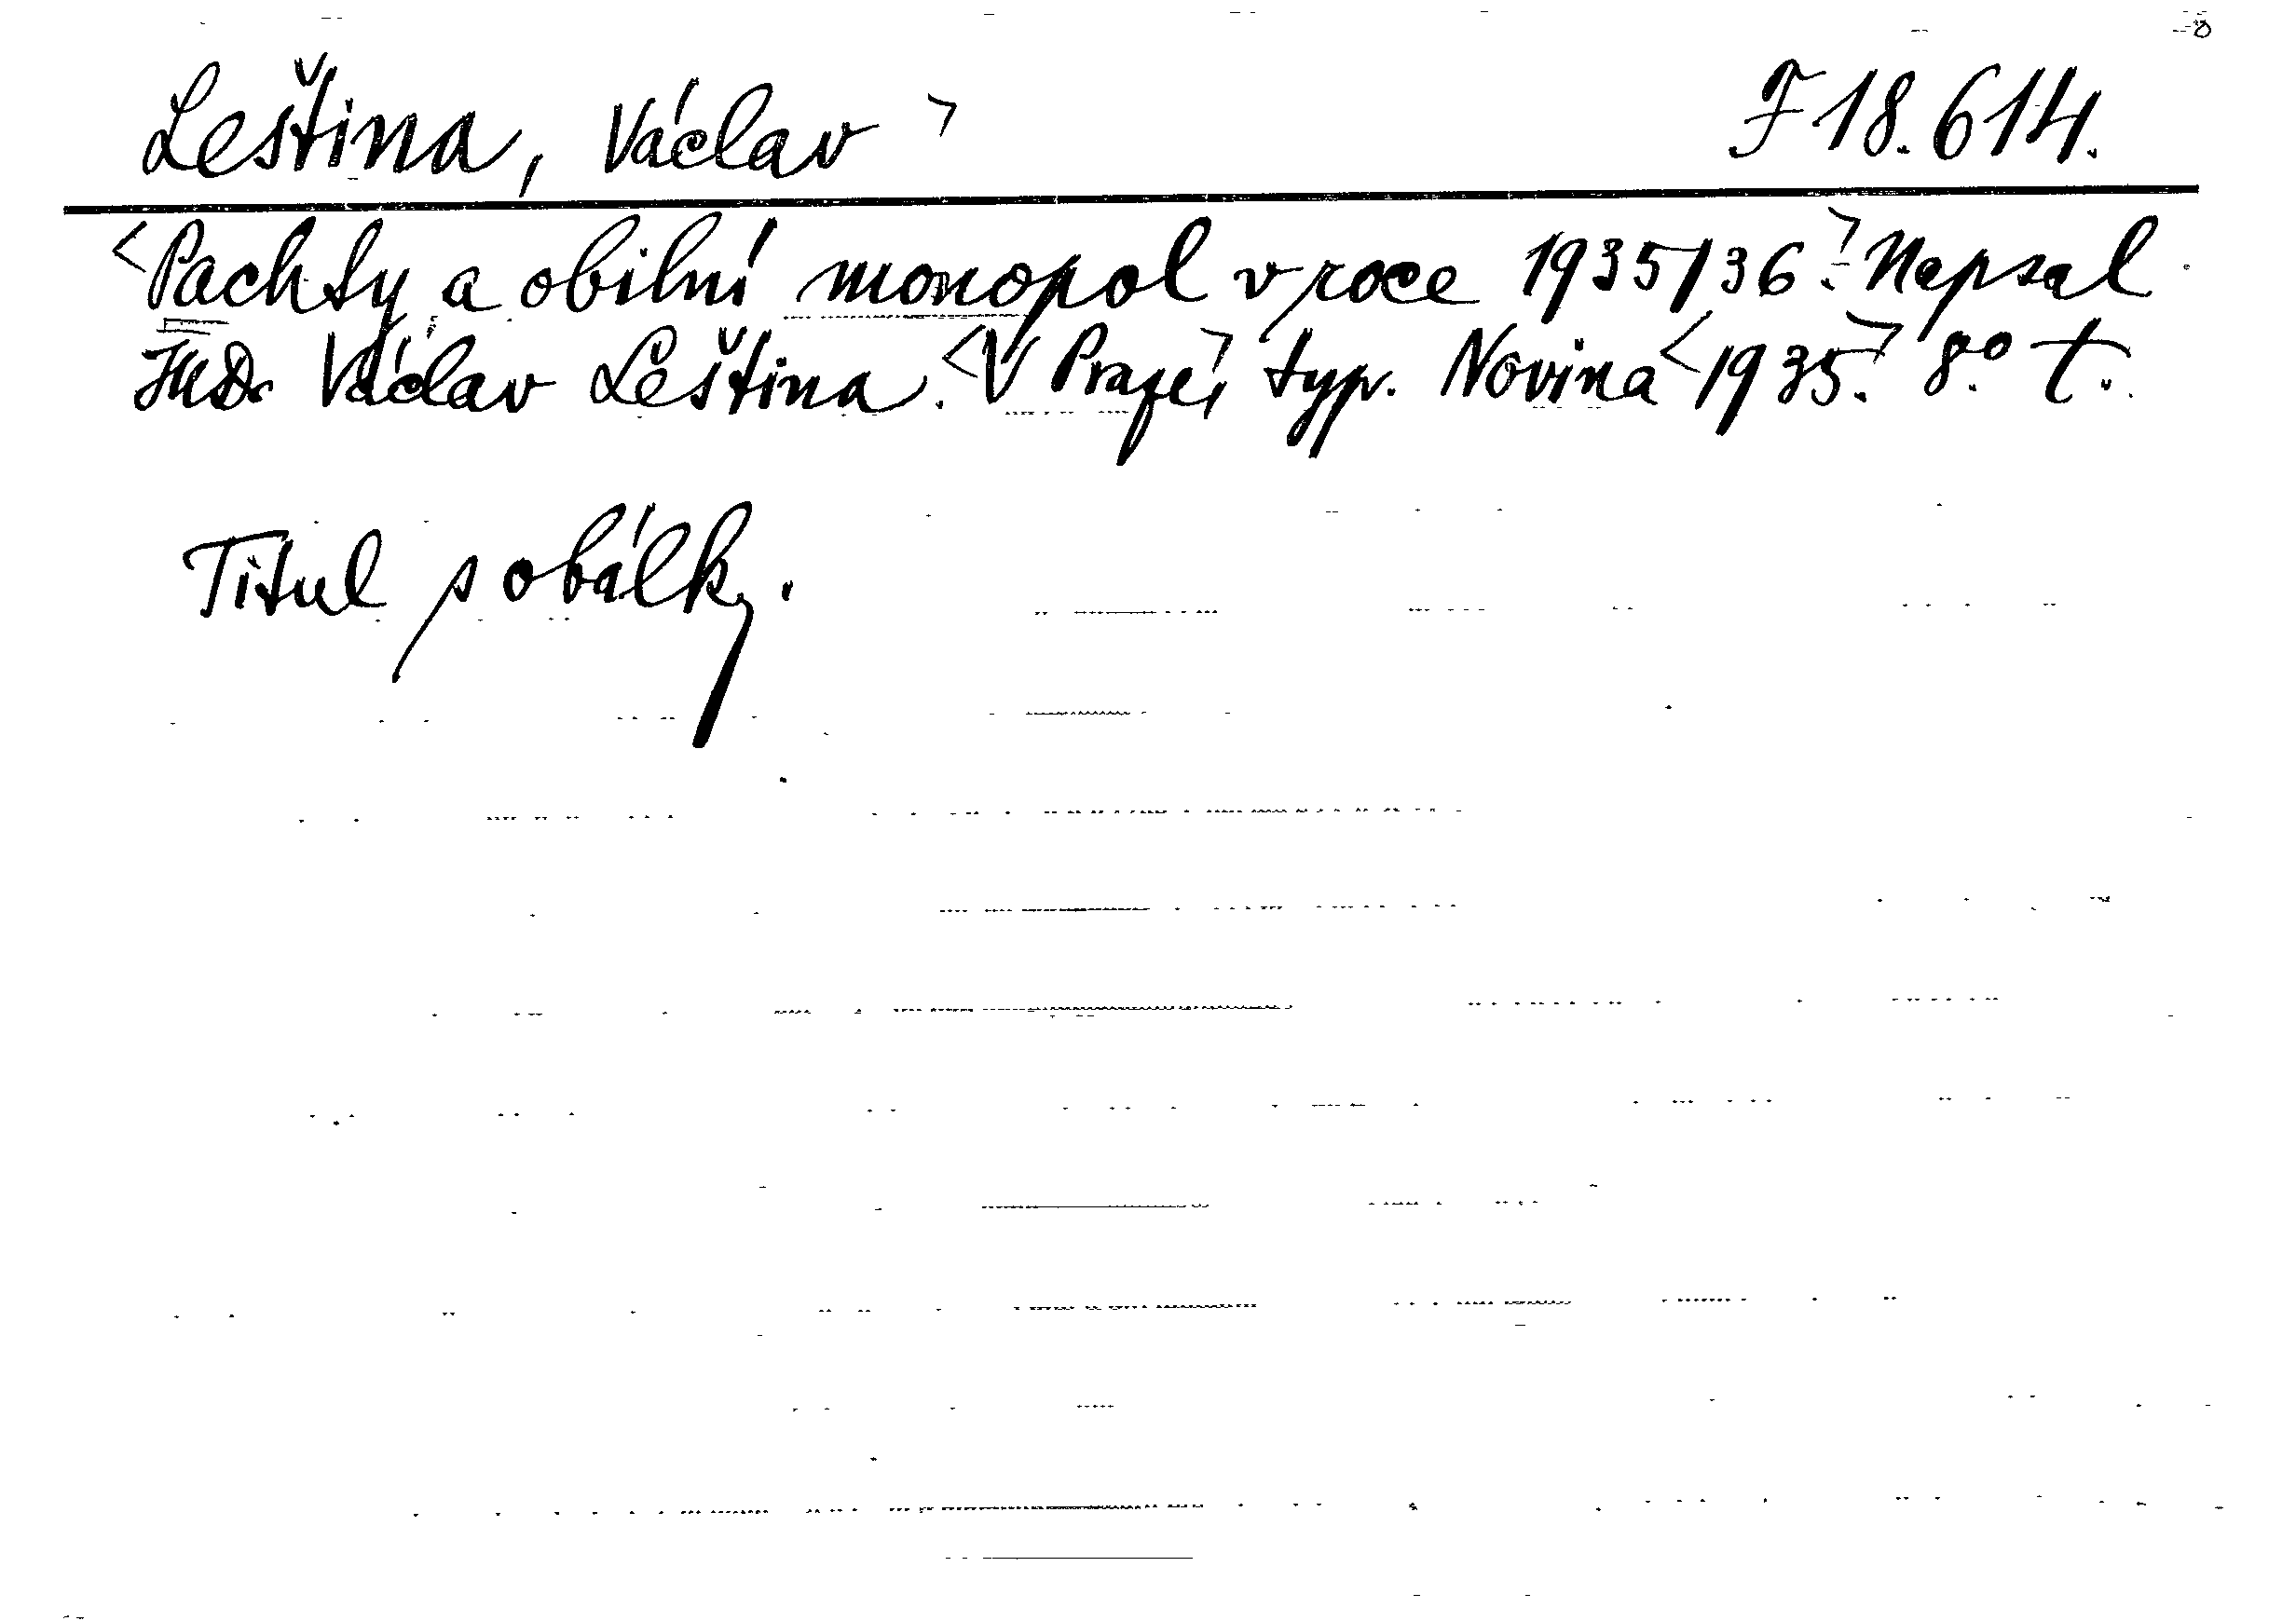 Leština, Václav > F 18.614.
<Pachty a obilní monopol v roce 1935/36.> Napsal
JUDr Václav Leština. <V Praze,> typ. Novina <1935.> 8.° t.
Titul s obálky.